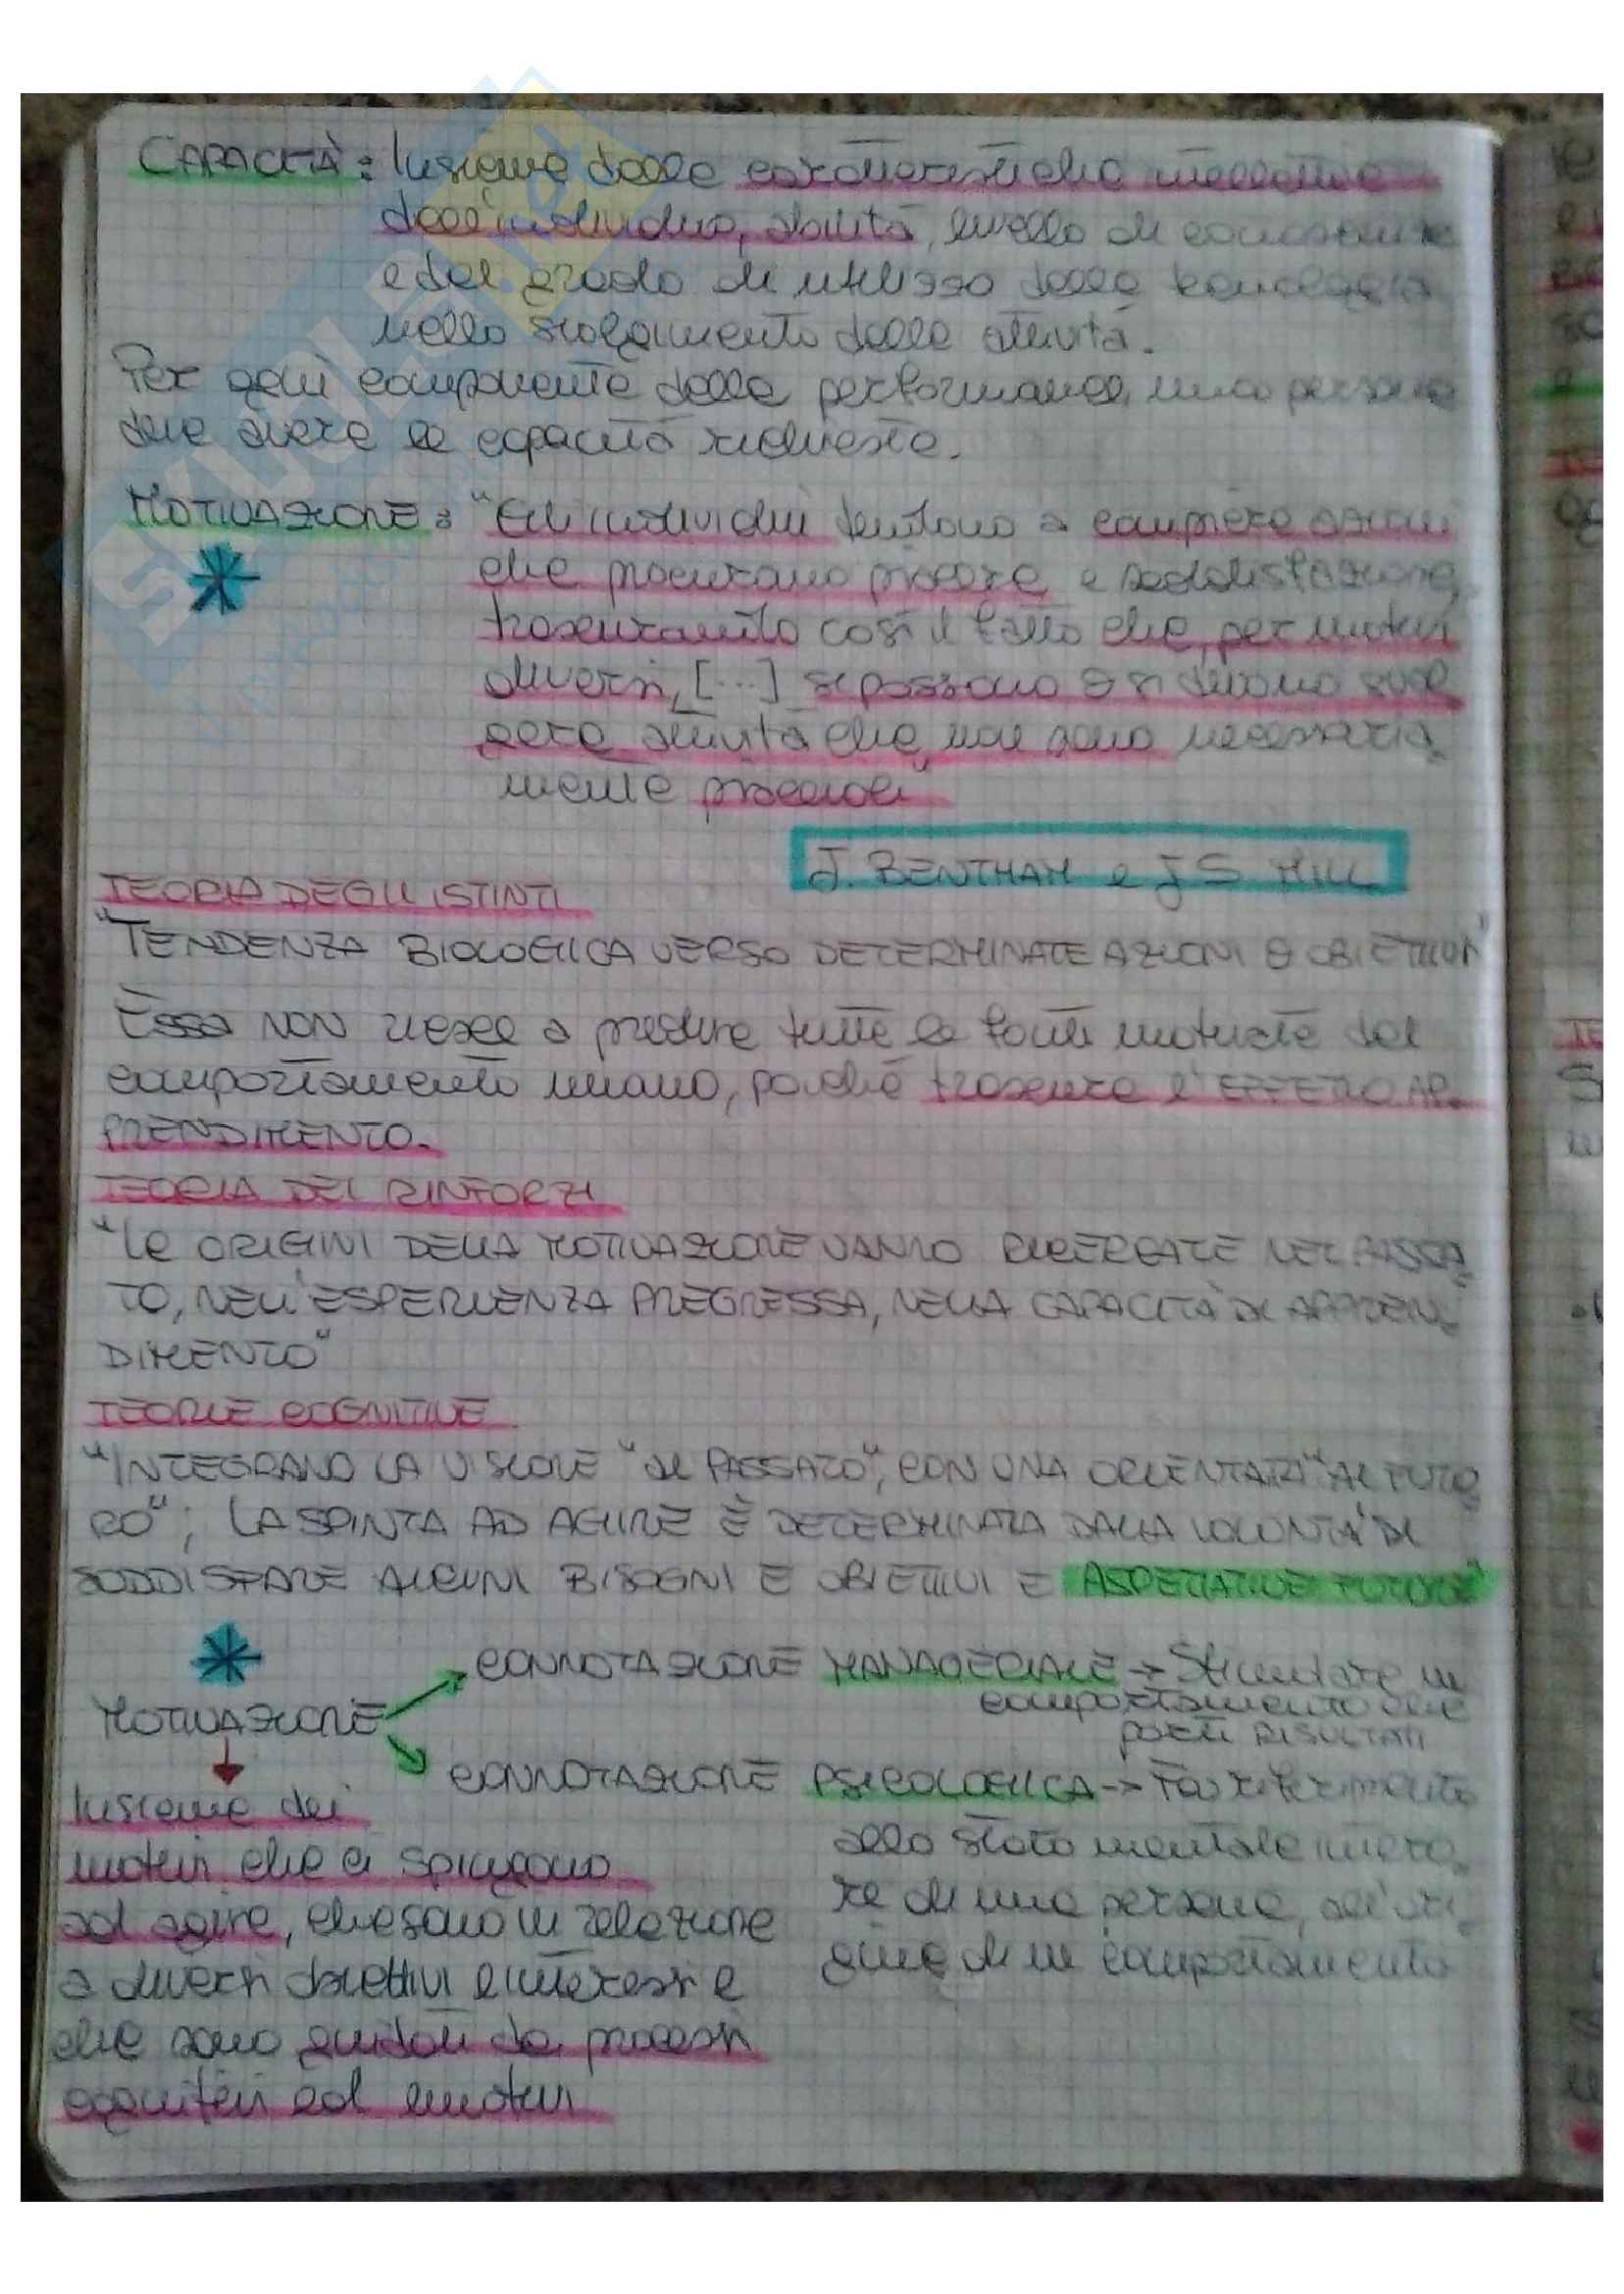 CAPACITÀ: Insieme delle caratteristiche intellettive
dell'individuo, abilità, livello di conoscenza
e del grado di utilizzo della tecnologia
nello svolgimento delle attività.
Per ogni componente della performance, una persona
deve avere le capacità richieste.
MOTIVAZIONE: "Gli individui tendono a compiere azioni
che procurano piacere e soddisfazione,
trascurando così il fatto che, per motivi
diversi, [...] si possono o si devono svol
gere attività che non sono necessaria
mente piacevoli"
J. BENTHAM e J S MILL
TEORIA DEGLI ISTINTI
"TENDENZA BIOLOGICA VERSO DETERMINATE AZIONI O OBIETTIVI"
Essa NON riesce a predire tutte le fonti motrici del
comportamento umano, poiché trascura l'EFFETTO AP-
PRENDIMENTO.
TEORIA DEI RINFORZI
"LE ORIGINI DELLA MOTIVAZIONE VANNO RICERCATE NEL PASSA
TO, NELL'ESPERIENZA PREGRESSA, NELLA CAPACITÀ DI APPREN
DIMENTO"
TEORIE COGNITIVE
"INTEGRANO LA VISIONE "AL PASSATO", CON UNA ORIENTATA "AL FUTU
RO"; LA SPINTA AD AGIRE È DETERMINATA DALLA VOLONTÀ DI
SODDISFARE ALCUNI BISOGNI E OBIETTIVI E ASPETTATIVE FUTURE"
CONNOTAZIONE MANAGERIALE → Stimolare un
comportamento che
porti RISULTATI
MOTIVAZIONE
CONNOTAZIONE PSICOLOGICA → Fa riferimento
allo stato mentale interio
re di una persona, all'ori
gine di un comportamento
Insieme dei
motivi che ci spingono
ad agire, che sono in relazione
a diversi obiettivi e interessi e
che sono guidati da processi
cognitivi ed emotivi
SKUOLA.net